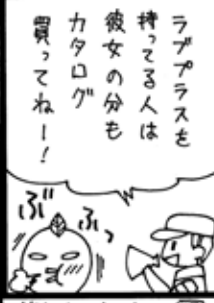 ラブプラスを
持ってる人は
彼女の分も
カタログ
買ってねー！
ぶふっ